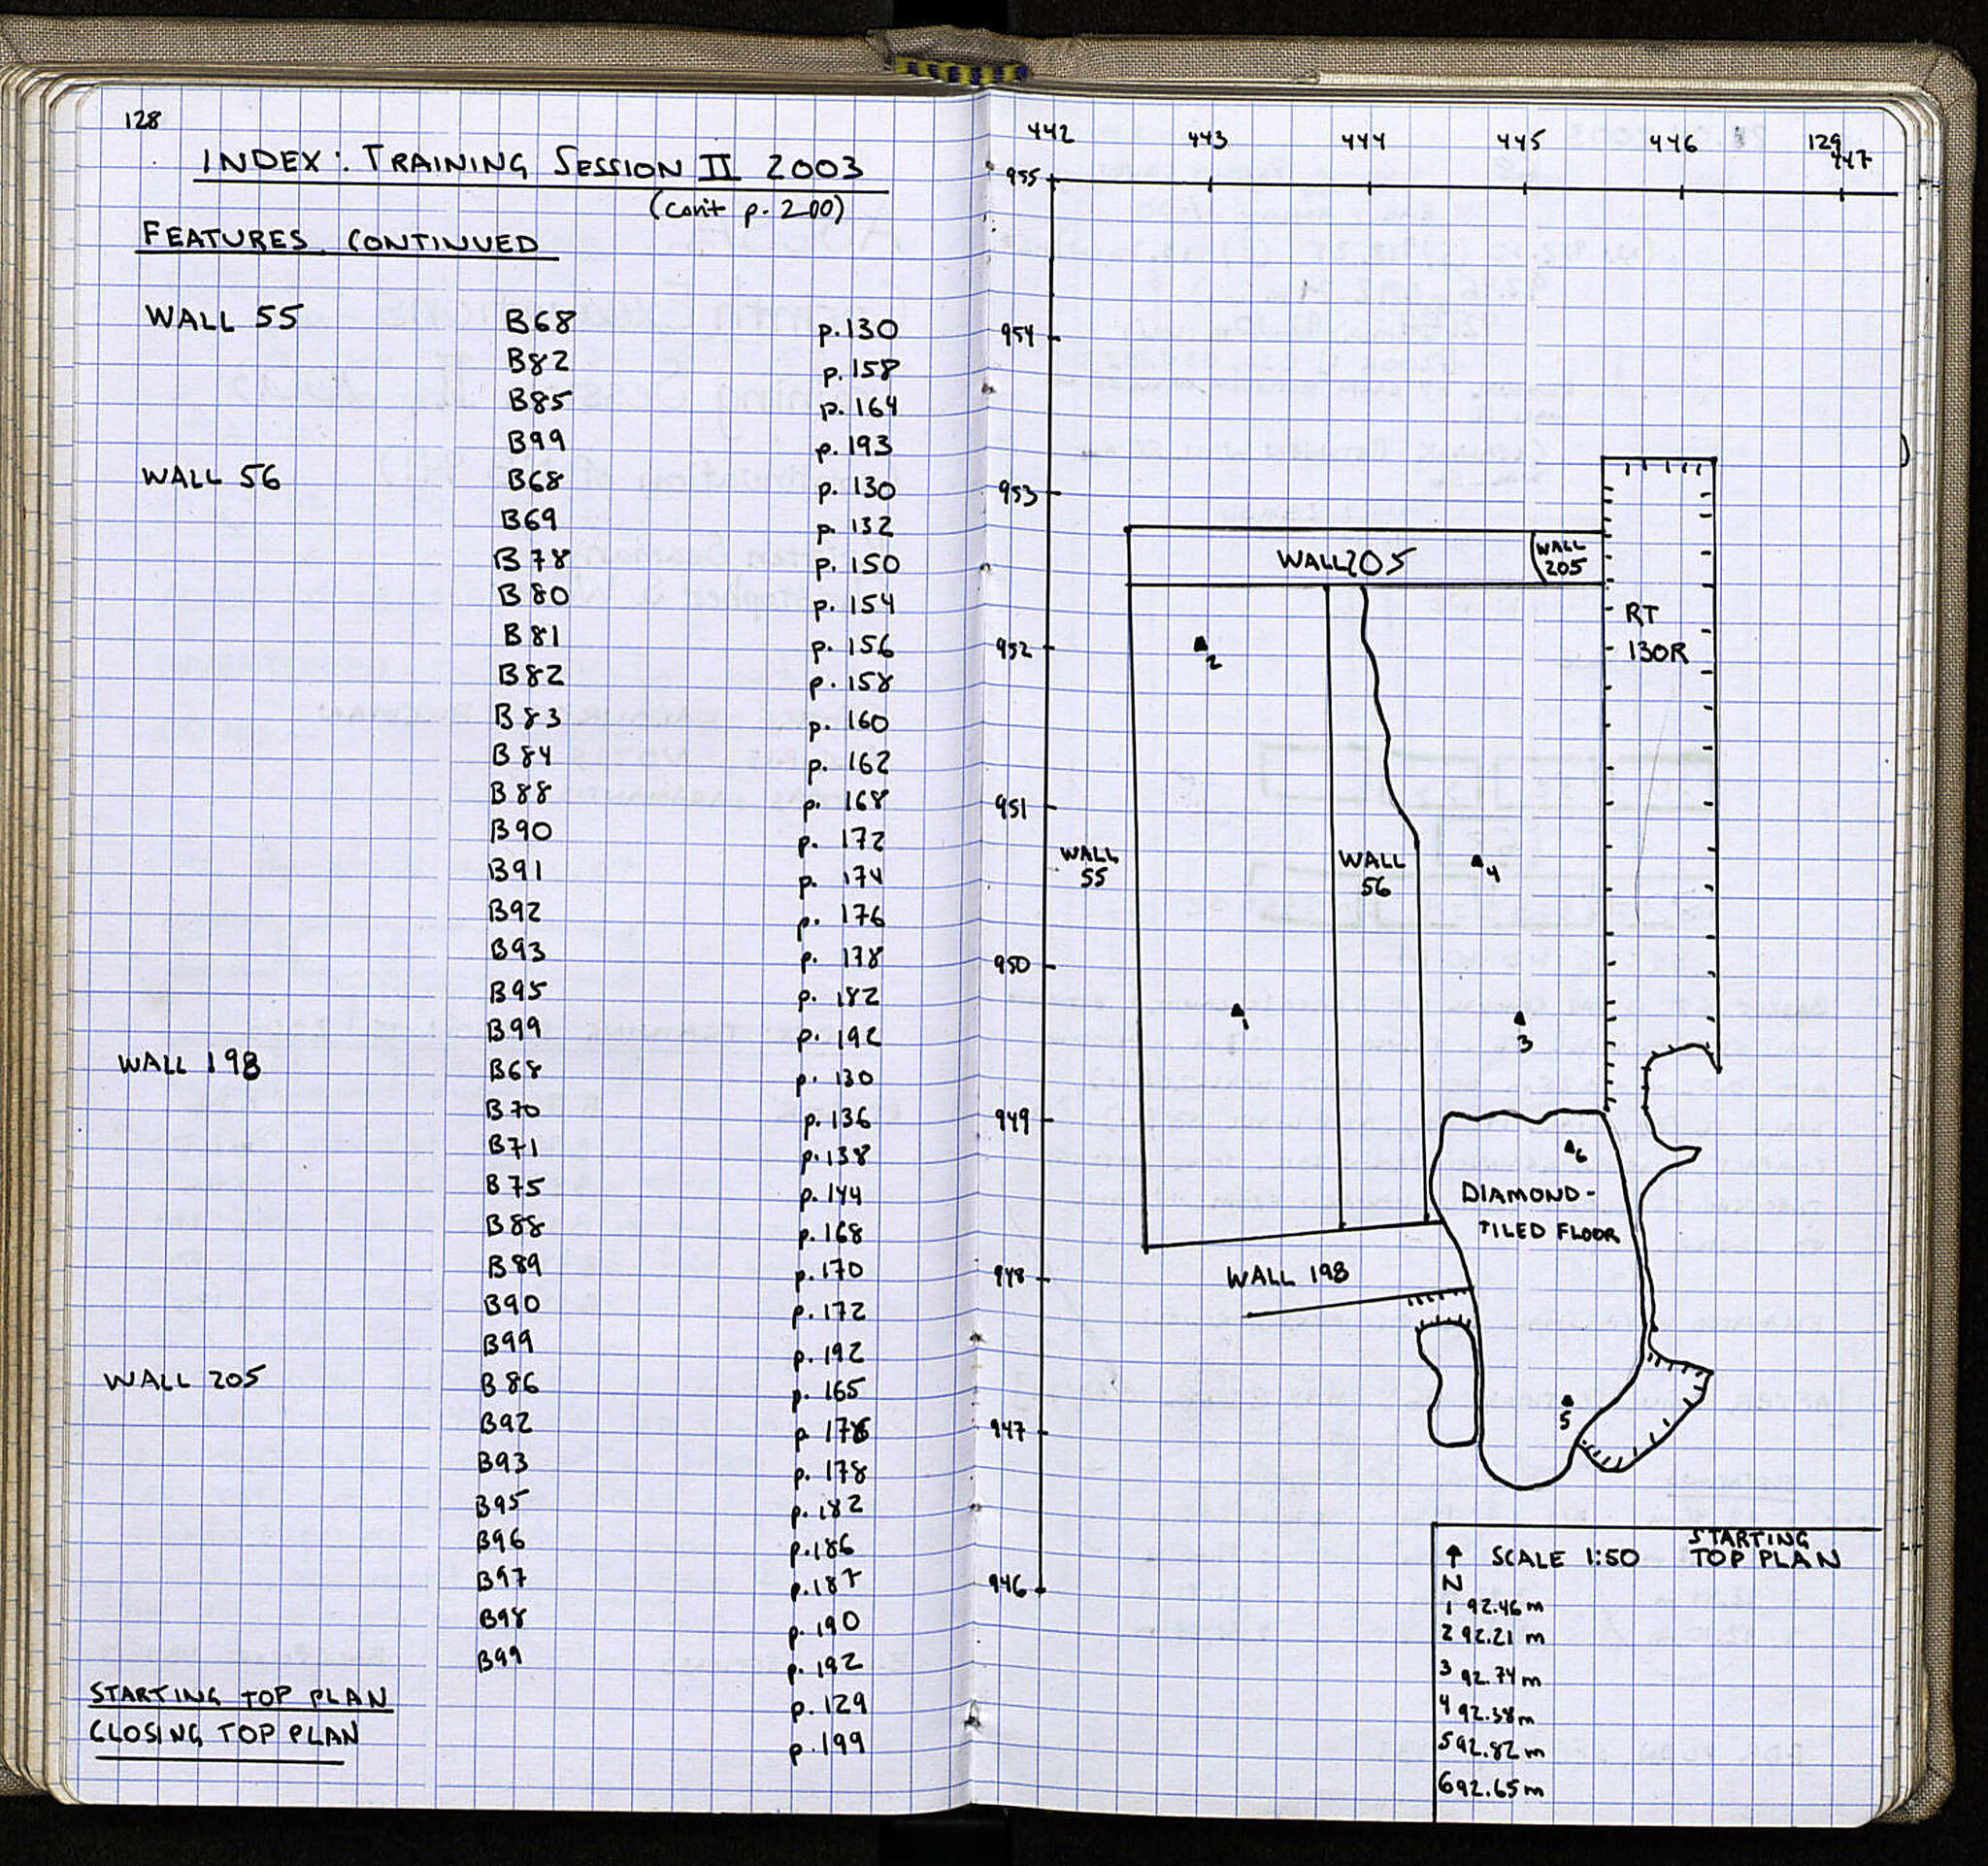 128
INDEX: TRAINING SESSION II 2003
(con't p. 200)
FEATURES, CONTINUED
WALL 55 B68 p. 130
B82 p. 158
B85 p. 164
B99 p. 193
WALL 56 B68 p. 130
B69 p. 132
B78 p. 150
B80 p. 154
B81 p. 156
B82 p. 158
B83 p. 160
B84 p. 162
B88 p. 168
B90 p. 172
B91 p. 174
B92 p. 176
B93 p. 178
B95 p. 182
B99 p. 192
WALL 198 B68 p. 130
B70 p. 136
B71 p. 138
B75 p. 144
B88 p. 168
B89 p. 170
B90 p. 172
B99 p. 192
WALL 205 B86 p. 165
B92 p. 176
B93 p. 178
B95 p. 182
B96 p. 186
B97 p. 187
B98 p. 190
B99 p. 192
STARTING TOP PLAN p. 129
CLOSING TOP PLAN p. 199
129
442 443 444 445 446 447
955
954
953
952
951
950
949
948
947
946
WALL 205
WALL
205
RT
130R
2
WALL
55
WALL
56
4
1
3
6
DIAMOND-
TILED FLOOR
WALL 198
5
STARTING
TOP PLAN
SCALE 1:50
N
1 92.46 m
2 92.21 m
3 92.74 m
4 92.38 m
5 92.82 m
6 92.65 m